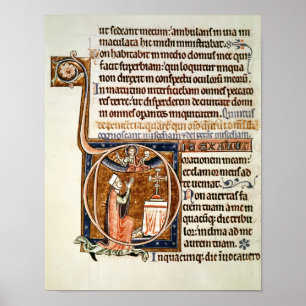 ut sedeant mecum: ambulans in uia im
maculata hic michi ministrabat.
Non habitabit in medio domus mee qui
facit superbiam: qui loquitur iniqua
non direxit in conspectu oculorum meorum.
In matutino interficiebam omnes pecca
tores terre: ut disperderem de ciuitate domi
ni omnes operantes iniquitatem.
orationem meam:
et clamor meus ad
te ueniat.
Non auertas fa
ciem tuam a me
in quacumque die tribu
lor: inclina ad me
aurem tuam.
In quacumque die inuocauero